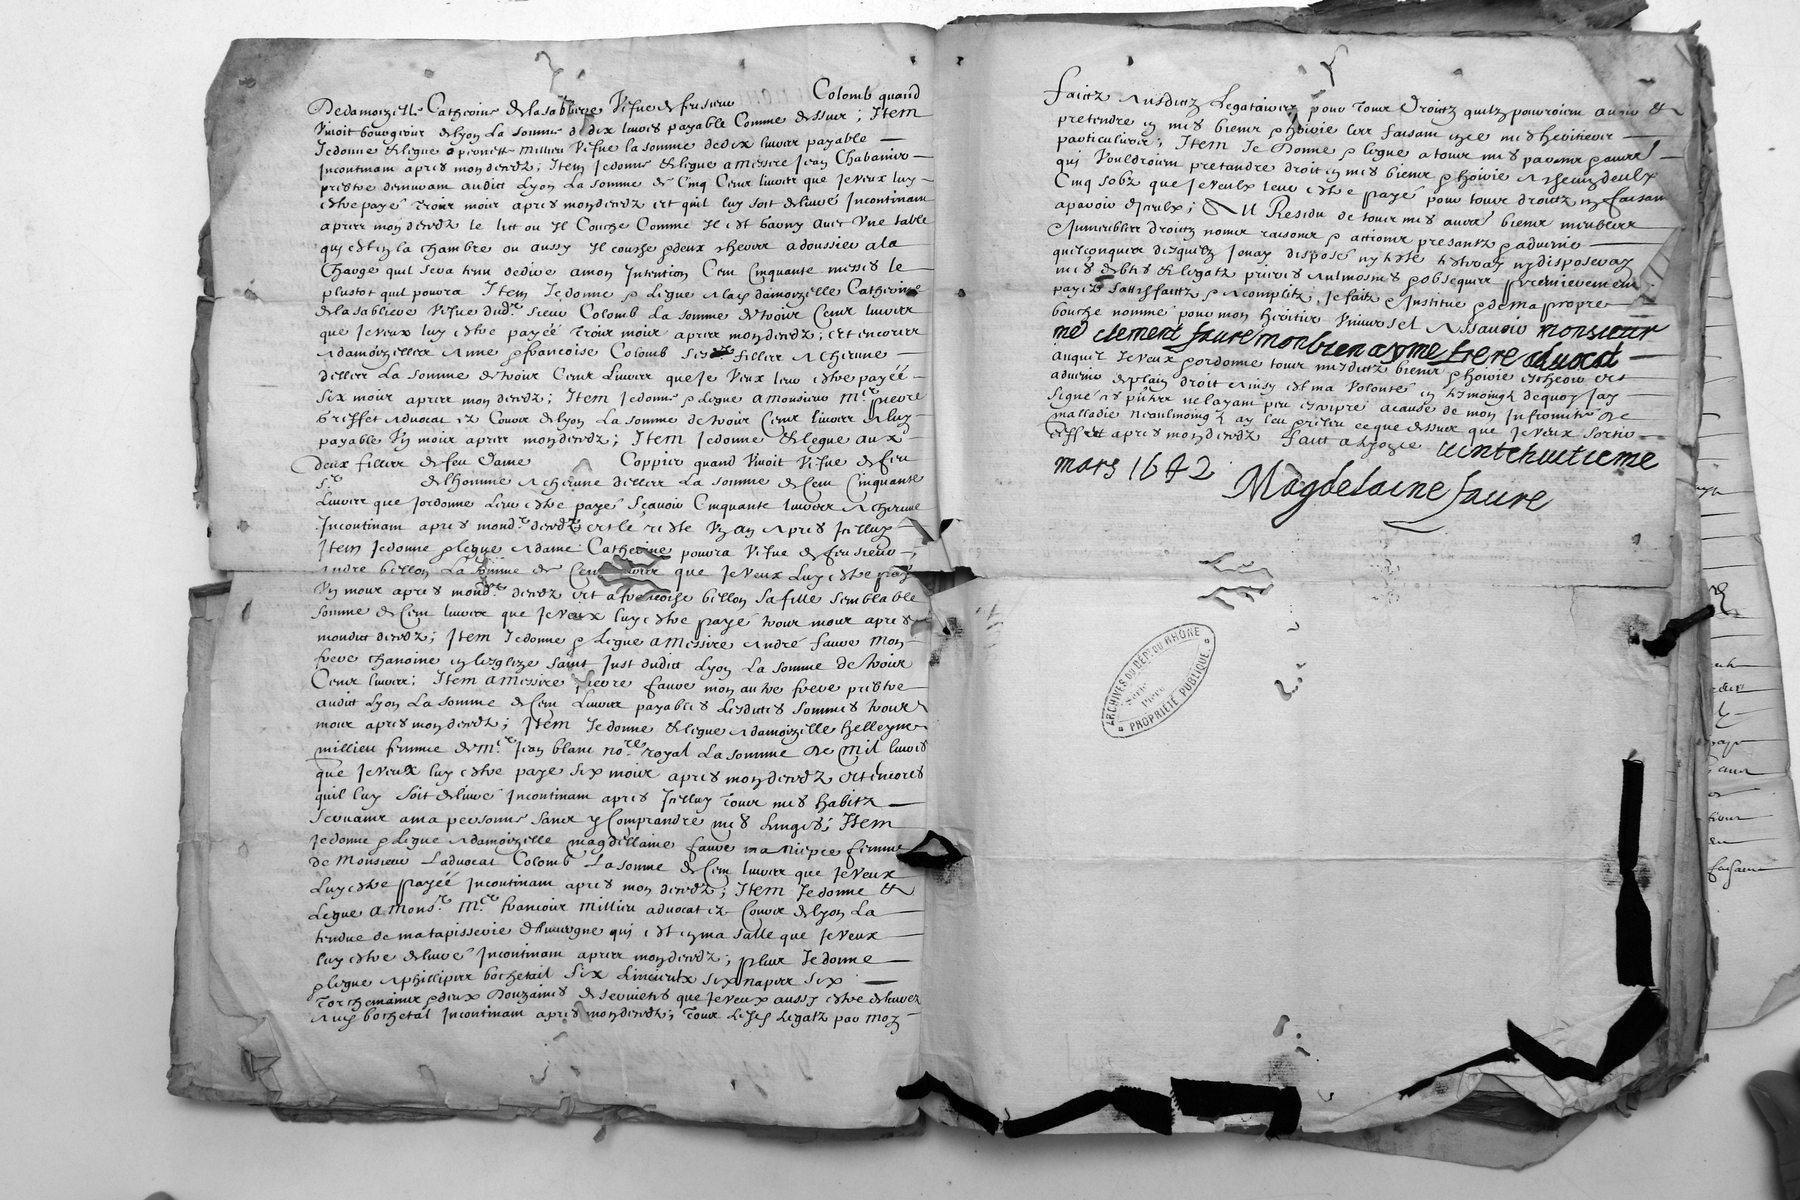 Dedamoizelle Catherine de la sabliere Vefue de feu sieur Colomb quand
Viuoit bourgeois de lyon La somme de dix liures payable Comme dessus ; Item
Je donne & legue a pernette millieu Vefue la somme de dix liures payable
Incontinant apres mon deceds ; Item Je donne & legue a messire Jean Chabanier
prebtre demeurant audict Lyon La somme de Cinq Cens liures que Je veux luy
estre payé Trois mois apres mon deceds et quil luy soit deliuré Incontinant
apres mon deceds le lict ou Il Couche Comme Il est garny auec Vne table
qui est en la chambre ou aussy Il couche & deux a doussier a la
Charge quil sera tenu de dire a mon Intention Cent Cinquante messes le
plustot quil pourra Item Je donne & Legue a lad. damoizelle Catherine
de la sabliere Vefue dud. sieur Colomb La somme de trois Cens liures
que Je veux luy estre payéé Trois mois apres mon deceds ; et encores
a damoizelles Anne & francoise Colomb ses filles a chescune
delles La somme de trois Cens Liures que Je Veux leur estre payéé
Six mois apres mon deceds ; Item Je donne & Legue a monsieur Mre. pierre
advocat ez Cours de lyon La somme de trois Cens liures a luy
payable Vn mois apres mon deceds ; Item Je donne & legue aux
deux filles de feu Dame Coppier quand Viuoit Vefue de feu
Sr. delhomme a chescune delles La somme de Cent Cinquante
Liures que Jordonne leur estre payé Scauoir Cinquante liures a chescune
Incontinant apres mond. deceds et le reste Vn an apres Icelluy
Item Je donne & legue a dame Catherine Vefue de feu sieur
Andre billon La somme de Cent liures que Je veux Luy estre payé
Vn mois apres mond. deceds et a francoise billon sa fille semblable
somme de Cent liures que Je veux luy estre payé trois mois apres
mondict deceds ; Item Je donne & Legue a messire André faure mon
frere chanoine en lesglize saint Just dudict Lyon La somme de trois
Cens liures ; Item a messire pierre faure mon autre frere prebtre
audict Lyon La somme de Cent Liures payables Lesdictes sommes trois
mois apres mon deceds ; Item Je donne & legue a damoizelle helleyne
millieu femme de Mre. Jean blanc nore. royal La somme de Mil liures
que Je veux luy estre payé six mois apres mon deceds et encores
quil luy soit deliuré Incontinant apres Icelluy Tous mes habitz
seruant a ma personne sans y Comprandre mes linges ; Item
Je donne & Legue a damoizelle magdellaine faure ma niepce femme
de Monsieur Ladvocat Colomb La somme de Cent liures que Je veux
Luy estre payéé Incontinant apres mon deceds ; Item Je donne &
Legue a Monsr. Mre. francois millieu advocat ez Cours de lyon La
tendue de ma tapisserie dauuergne qui est en ma salle que Je veux
luy estre deliuré Incontinant apres mon deceds ; plus Je donne
& legue a phillipes bochetail Six Linceulx six napes six
& deux Douzaines de seruietes que Je veux aussy estre deliurez
aud. bochetal Incontinant apres mon deceds ; Tous Lesd. Legatz par moy
faictz ausdictz Legataires pour Tous Droictz quilz pourroient auoir &
pretendre en mes biens & hoirie Les faisant en ce mes heritiers
particuliers ; Item Je Donne & legue a tous mes parens & autres
qui Vouldroient pretandre droit en mes biens & hoirie a chescun deulx
Cinq solz que Je veulx leur estre payé pour tous droictz en faisant
apparoir diceulx ; & Au Residu de tous mes autres biens meubles
& Immeubles droictz noms raisons & actions presantz & aduenir
quelconques desquelz Jenay disposé ny
mes debtes & legatz prieres aulmosnes & obseques premierement
payez sattisfaictz & acomplitz, Je faitz & Institue & de ma propre
bouche nomme pour mon heritier Vniuersel Assauoir monsieur
me clement faure mon bien ayme frere advocat
auquel Je veux & ordonne tous mesdictz biens & hoirie
aduenir de plain droit Ainsy est ma Volonté en tesmoing dequoy Jay
signé ne layant peu escripre a cause de mon Infirmite &
malladie neantmoingz ay leu ce que dessus que Je veux sortir
effect apres mon deceds faict a lyon ce vintehuitieme
mars 1642
Magdelaine faure
ARCHIVES DU DEPt. DU RHONE
Série
Pièce
PROPRIÉTÉ PUBLIQUE